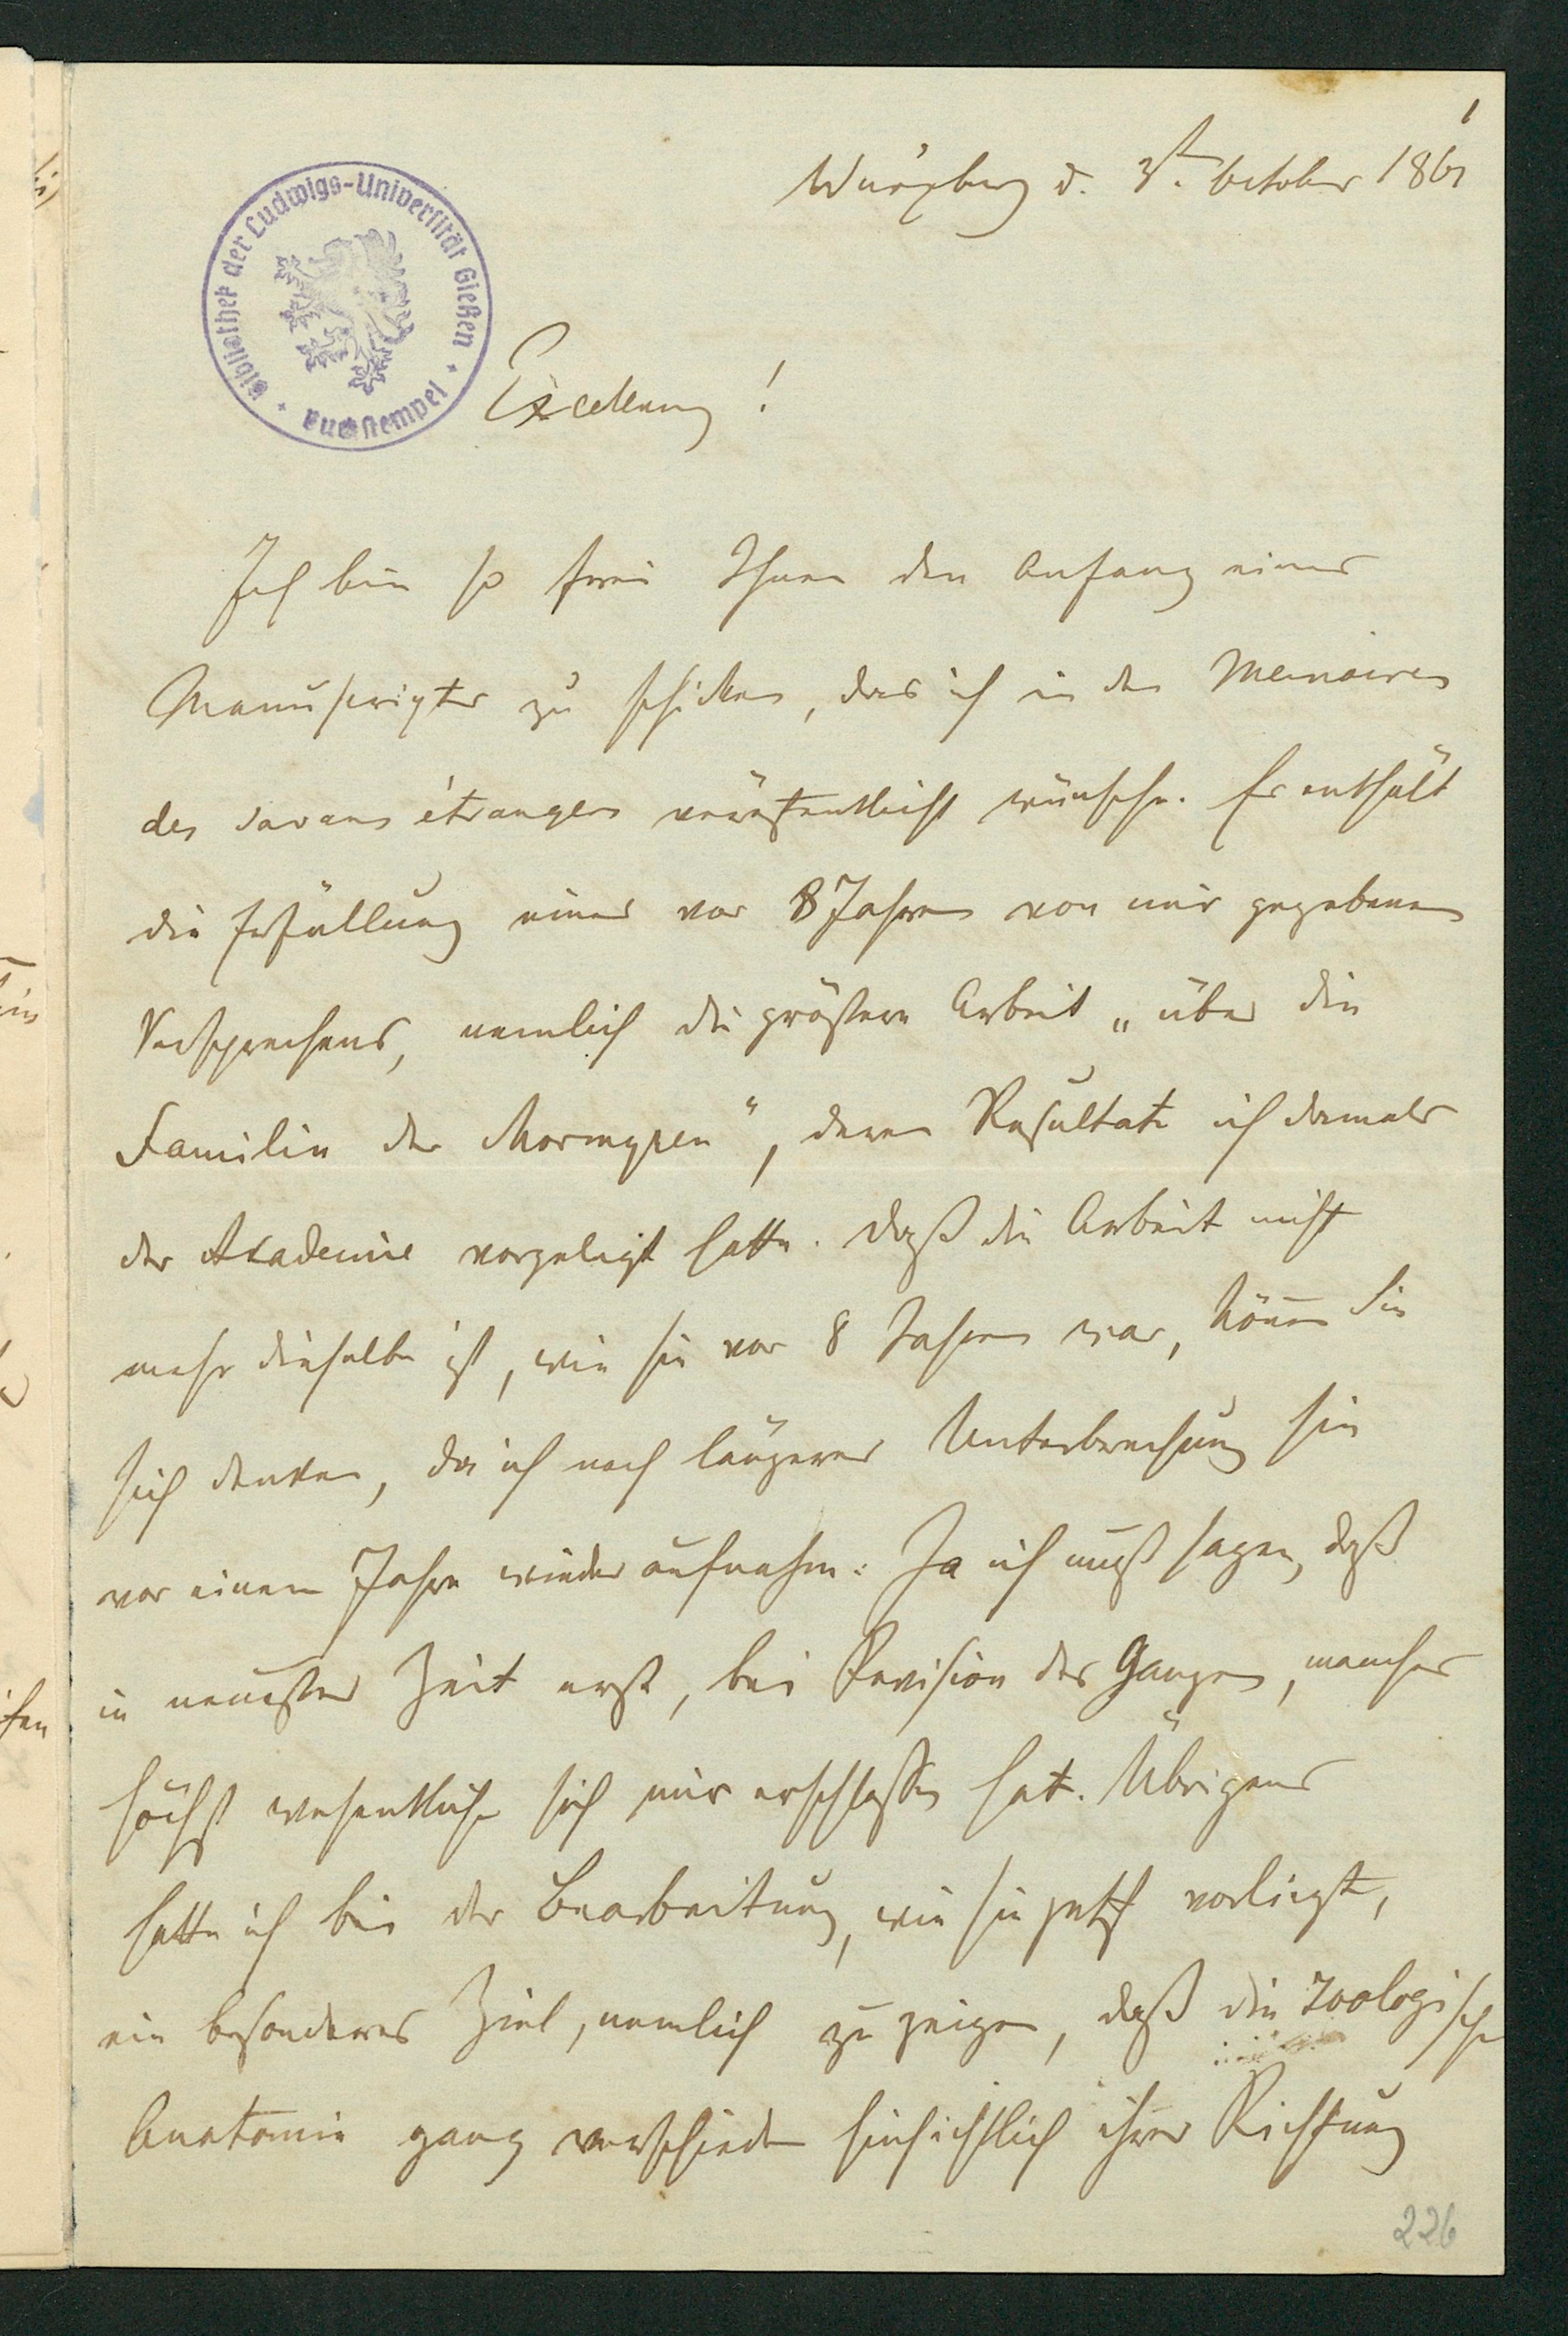 1
Würzburg d. 3t. October 1861
Bibliothek der Ludwigs-Universität Gießen
Buchstempel
Excellenz!
Ich bin so frei Ihnen den Anfang eines
Manuscriptes zu schicken, das ich in den Memoires
des savans étrangers veröffentlicht wünsche. Es enthält
die Erfüllung eines vor 8 Jahren von mir gegebenen
Versprechens, nemlich die größere Arbeit „über die
Familie der Mormyren“, deren Resultate ich damals
der Akademie vorgelegt hatte. Daß die Arbeit nicht
mehr dieselbe ist, wie sie vor 8 Jahren war, können Sie
sich denken, da ich nach längerer Unterbrechung sie
vor einem Jahre wieder aufnahm: Ja ich muß sagen, daß
in neuester Zeit erst, bei Revision des Ganzen, manches
höchst wesentliche sich mir erschlossen hat. Übrigens
hatte ich bei der Bearbeitung, wie sie jetzt vorliegt,
ein besonderes Ziel, nemlich zu zeigen, daß die zoologische
Anatomie ganz verschieden hinsichtlich ihrer Richtung
226